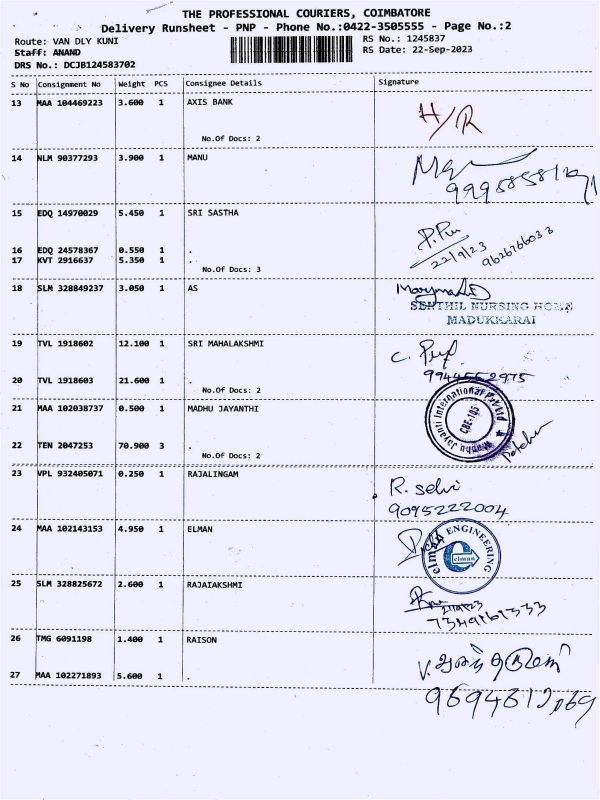 THE PROFESSIONAL COURIERS, COIMBATORE
Delivery Runsheet - PNP - Phone No.:0422-3505555 - Page No.:2
Route: VAN DLY KUNI
RS No.: 1245837
Staff: ANAND
RS Date: 22-Sep-2023
DRS No.: DCJB124583702
S No Consignment No Weight PCS Consignee Details Signature
13 MAA 104469223 3.600 1 AXIS BANK
H/R
No.Of Docs: 2
14 NLM 90377293 3.900 1 MANU
15 EDQ 14970029 5.450 1 SRI SASTHA
22/9/23 9626766033
16 EDQ 24578367 0.550 1 .
17 KVT 2916637 5.350 1 .
No.Of Docs: 3
18 SLM 328849237 3.050 1 AS
SENTHIL NURSING HOME
MADUKKARAI
19 TVL 1918602 12.100 1 SRI MAHALAKSHMI
9944552975
20 TVL 1918603 21.600 1 .
No.Of Docs: 2
21 MAA 102038737 0.500 1 MADHU JAYANTHI
Madhu Jayanti International Pvt Ltd
CBE-105
22 TEN 2047253 70.900 3 .
No.Of Docs: 2
23 VPL 932405071 0.250 1 RAJALINGAM
R. selvi
9095222004
24 MAA 102143153 4.950 1 ELMAN
elman ENGINEERING
elman
25 SLM 328825672 2.600 1 RAJAIAKSHMI
26 TMG 6091198 1.400 1 RAISON
27 MAA 102271893 5.600 1 .